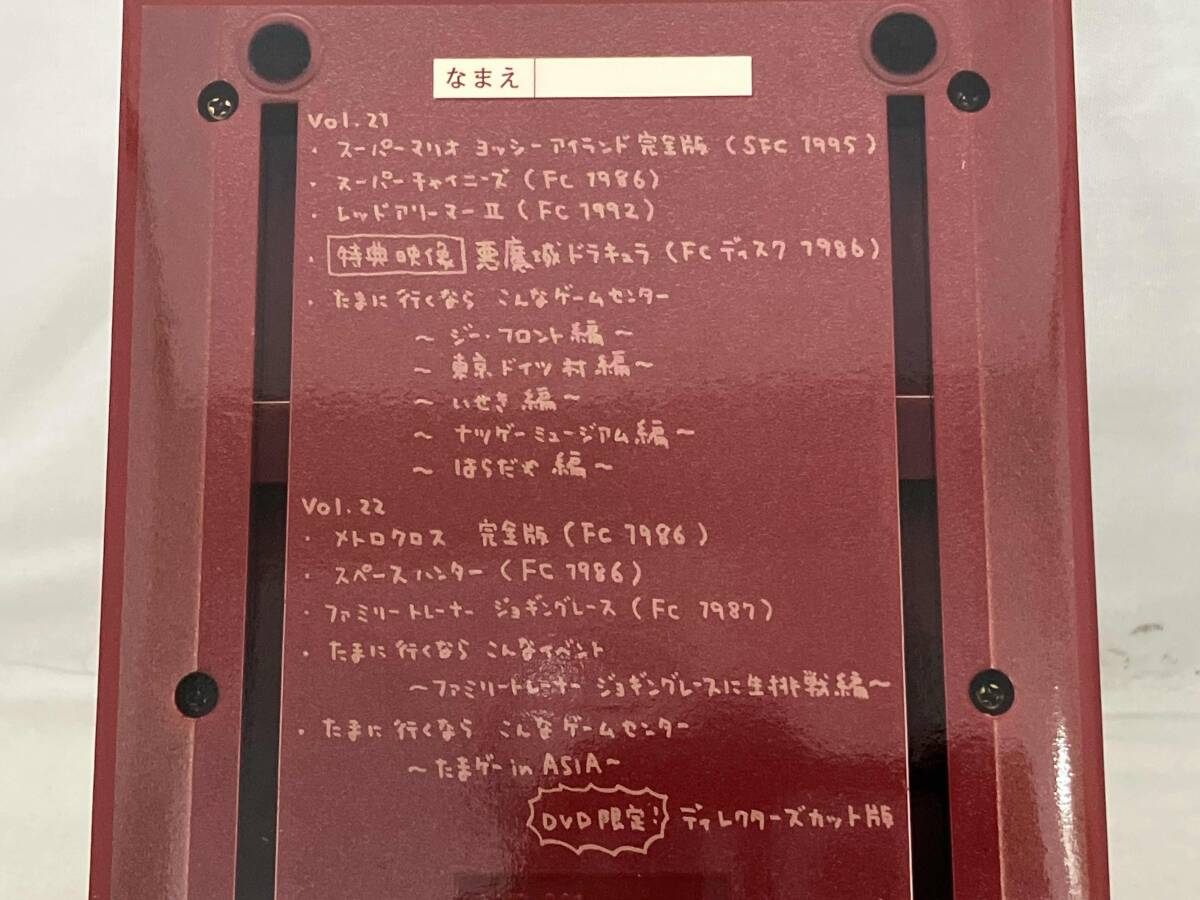 なまえ
Vol.21
・スーパーマリオ ヨッシーアイランド 完全版 (SFC 1995)
・スーパーチャイニーズ (FC 1986)
・レッドアリーマーⅡ (FC 1992)
・特典映像 悪魔城ドラキュラ (FCディスク 1986)
・たまに行くなら こんなゲームセンター
～ ジー・フロント編 ～
～ 東京ドイツ村編～
～ いせき編～
～ ナツゲーミュージアム編～
～ はらだや編～
Vol.22
・メトロクロス 完全版 (FC 1986)
・スペースハンター (FC 1986)
・ファミリートレーナー ジョギングレース (FC 1987)
・たまに行くなら こんなイベント
～ファミリートレーナー ジョギングレースに生挑戦編～
・たまに行くなら こんなゲームセンター
～たまゲー in ASIA～
DVD限定! ディレクターズカット版